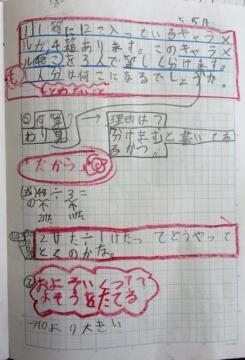 1箱に12こ入っているキャラメ
ルが4箱あります。このキャラメ
ル48こを3人で等しく分けます。
1人分は何こになるでしょうか。
もとめたいこと
①何算?
わり算
理由は?
分けますと書いてあ
るから。
だから
48÷3=
2けた÷1けたってどうやって
とくのかな。
②
およそいくつ??
よそうをたてる
→10より大きい